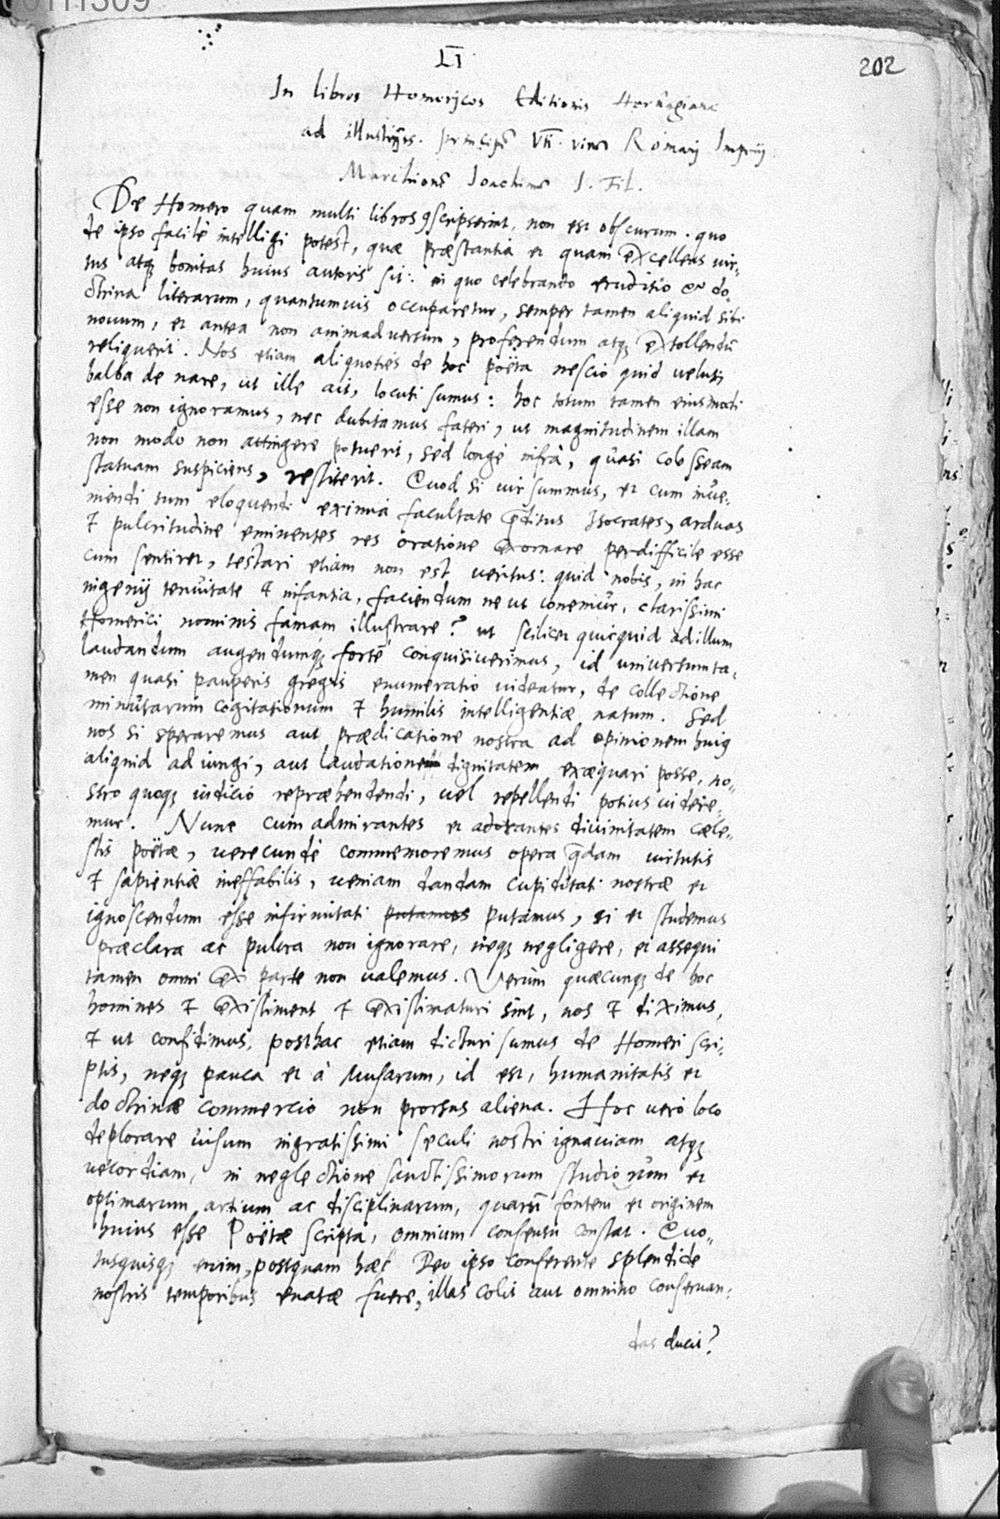 00111309
LI
202
In libros Homericos Editionis Hornagianæ
ad illustriss. principē VII. virū Romani Imperij
Marchionē Joachimū J. Fil.
De Homero quam multi libros ꝯscripserint, non est obscurum. quo
de ipso facilè intelligi potest, quæ præstantia et quam excellens vir-
tus atq; bonitas huius autoris sit: in quo celebrando eruditio & do-
ctrina literarum, quantumvis occuparetur, semper tamen aliquid sibi
novum, et antea non animadversum, proferendum atq; extollendū
reliquerit. Nos etiam aliquoties de hoc poëta nescio quid veluti
balba de nare, ut ille ait, locuti sumus: hoc totum tamen eiusmodi
esse non ignoramus, nec dubitamus fateri, ut magnitudinem illam
non modo non attingere potuerit, sed longè infrà, quasi colosseam
statuam suspiciens, restiterit. Quod si vir summus, et cum inve-
niendi tum eloquendi eximia facultate p̄ditus Isocrates, arduas
& pulcritudine eminentes res oratione exornare perdifficile esse
cum sentiret, testari etiam non est veritus: quid nobis, in hac
ingenij tenuitate & infantia, faciendum ne ut conemur, clarissimi
Homerici nominis famam illustrare? ut scilicet quicquid ad illum
laudandum augendumq; fortè conquisiverimus, id universum ta-
men quasi pauperis gregis enumeratio videatur, de collectione
minutarum cogitationum & humilis intelligentiæ natum. Sed
nos si speraremus aut prædicatione nostra ad opinionem huiꝰ
aliquid adiungi, aut laudatione dignitatem exæquari posse, no-
stro quoq; iudicio repræhendendi, vel repellendi potius videre-
mur. Nunc cum admirantes et adorantes divinitatem cæle-
stis poëtæ, verecundè commemoremus opera q̄dam virtutis
& sapientiæ ineffabilis, veniam dandam cupiditati nostræ et
ignoscendum esse infirmitati putamus putamus, si et studemus
præclara ac pulcra non ignorare, neq; negligere, et assequi
tamen omni ex parte non valemus. Verùm quæcunq; de hoc
homines & existiment & existimaturi sint, nos & diximus,
& ut confidimus, posthac etiam dicturi sumus de Homeri scri-
ptis, neq; pauca et à Musarum, id est, humanitatis et
doctrinæ commercio non prorsus aliena. Hoc verò loco
deplorare visum ingratissimi seculi nostri ignaviam atq;
vecordiam, in neglectione sanctissimorum studiorum et
optimarum artium ac disciplinarum, quarū fontem et originem
huius esse Poëtæ scripta, omnium consensu constat. Quo-
tusquisq; enim, postquam hæc Deo ipso conferente splendide
nostris temporibus enatæ fuere, illas coli aut omnino conservan-
das ducit?